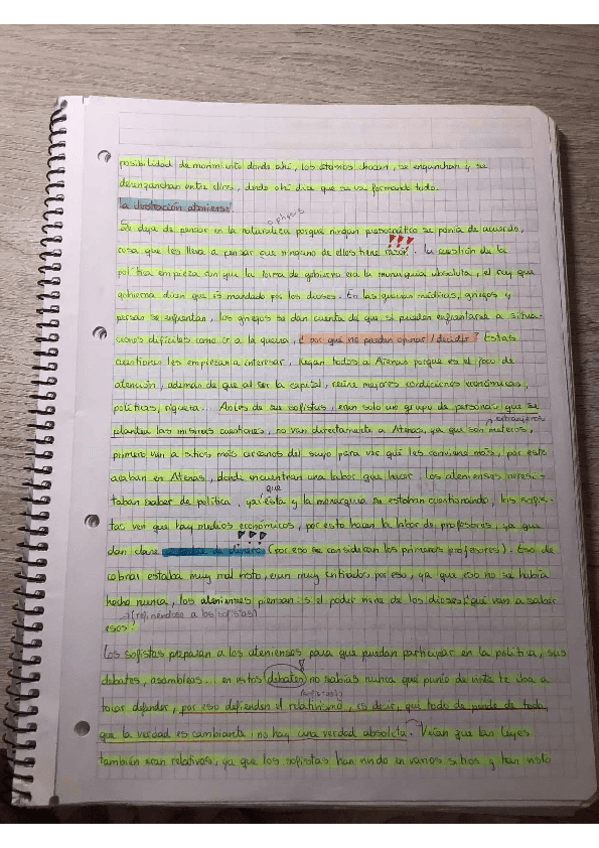 posibilidad de movimiento donde ahí, los átomos chocan, se enganchan y se
desenganchan entre ellos, desde ahí dice que se va formando todo.
La ilustración ateniense
o physis
Se deja de pensar en la naturaleza porque ningún presocrático se ponía de acuerdo,
cosa que les lleva a pensar que ninguno de ellos tiene razón. La cuestión de la
política empieza con que la forma de gobierno era la monarquía absoluta, el rey que
gobierna dicen que es mandado por los dioses. En las guerras médicas, griegos y
persas se enfrentan, los griegos se dan cuenta de que si pueden enfrentarse a situa-
ciones difíciles como ir a la guerra, ¿por qué no pueden opinar/decidir? Estas
cuestiones les empezaría interesar, llegan todos a Atenas porque es el foco de
atención, además de que al ser la capital, reúne mejores condiciones económicas,
políticas, riqueza. Antes de ser sofistas, eran solo un grupo de personas que se
extranjeros
plantean las mismas cuestiones, no van directamente a Atenas, ya que son metecos,
primero van a sitios más cercanos del suyo para ver qué les conviene más, por esto
acaban en Atenas, donde encuentran una labor que hacer. Los atenienses necesi-
que
taban saber de política, ya ésta y la monarquía se estaban cuestionando, los sofis-
tas ven que hay medios económicos, por esto hacen la labor de profesores, ya que
dan clase a cambio de dinero (por eso se consideran los primeros profesores). Eso de
cobrar estaba muy mal visto, eran muy criticados por eso, ya que eso no se había
hecho nunca, los atenienses piensan: si el poder viene de los dioses ¿qué van a saber
esos? (refiriéndose a los sofistas)
Los sofistas preparan a los atenienses para que puedan participar en la política, sus
debates, asambleas... en estos debates no sabías nunca qué punto de vista te iba a
tocar defender, por eso defienden el relativismo, es decir, que todo depende de todo,
que la verdad es cambiante, no hay una verdad absoluta. Veían que las leyes
también eran relativas, ya que los sofistas han vivido en varios sitios y han visto